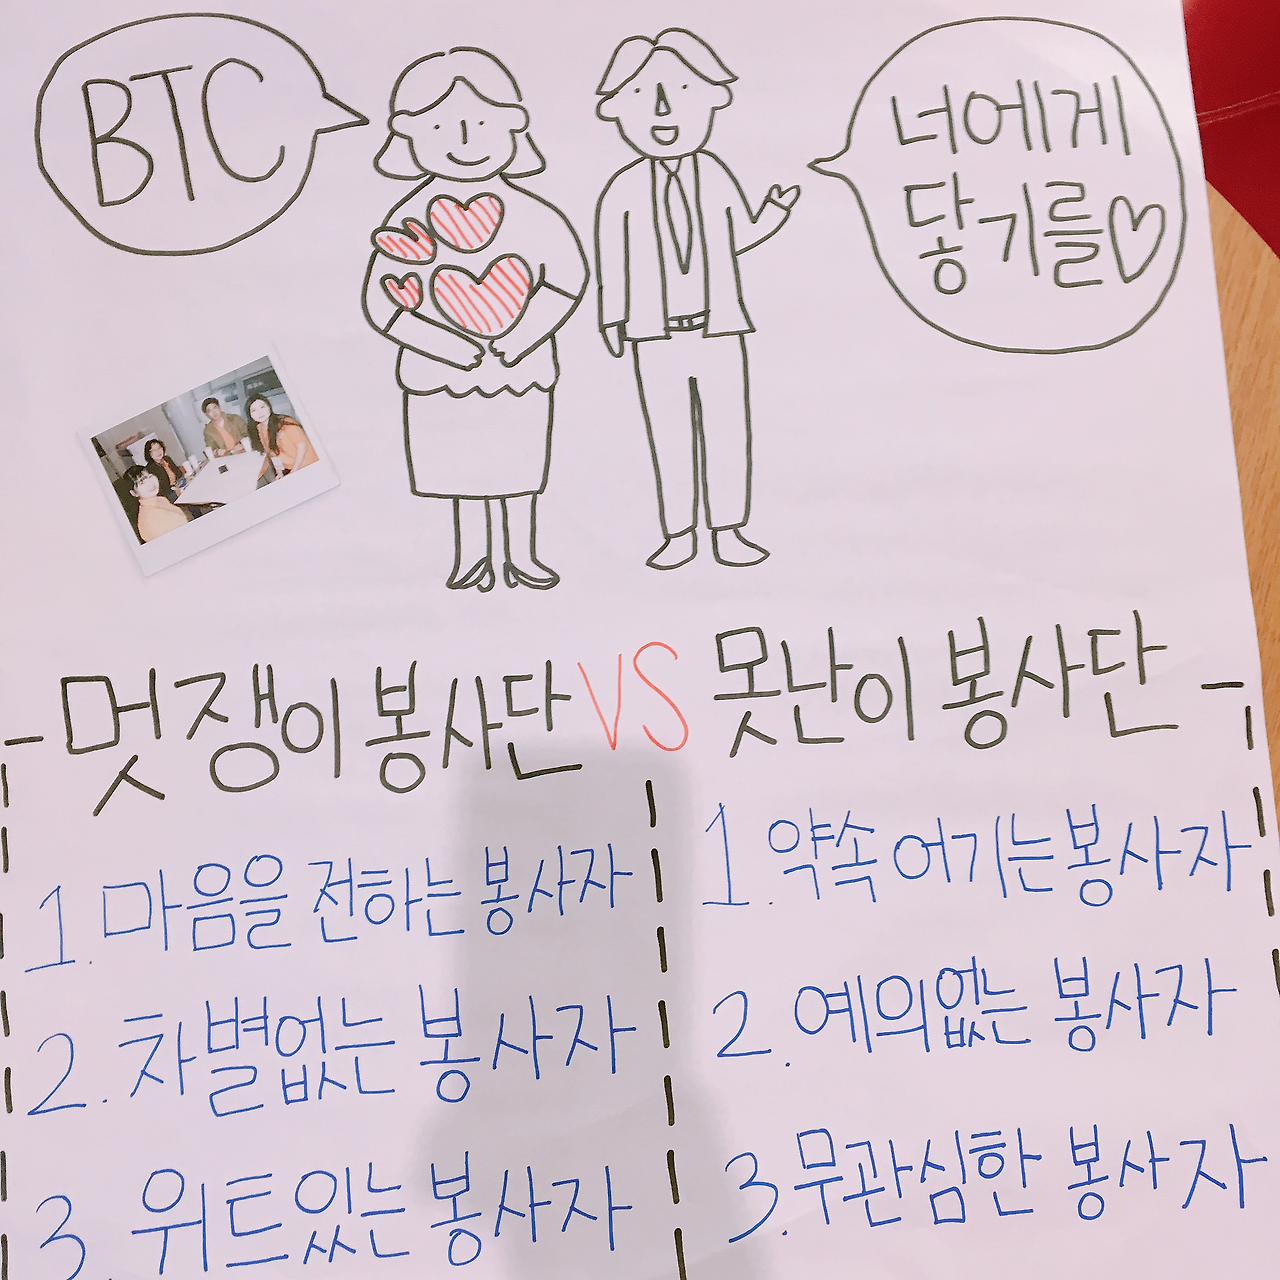 BTC
너에게
닿기를♡
멋쟁이 봉사단 VS 못난이 봉사단
1. 마음을 전하는 봉사자
2. 차별없는 봉사자
3. 위트있는 봉사자
1. 약속 어기는 봉사자
2. 예의없는 봉사자
3. 무관심한 봉사자